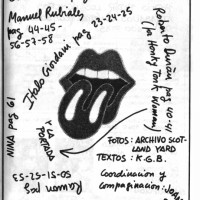 Manuel Rubiales
pag 44-45-
56-57-58-
Italo Giordani pag
23-24-25
Roberto Duran pag 40-41
(la Honky Tonk
Woman)
NINA pag 61
Y LA
PORTADA
FOTOS: ARCHIVO SCOT-
LAND YARD
TEXTOS: K.G.B.
Ramon pag
50-51-52-53
Coordinación y
Compaginación: